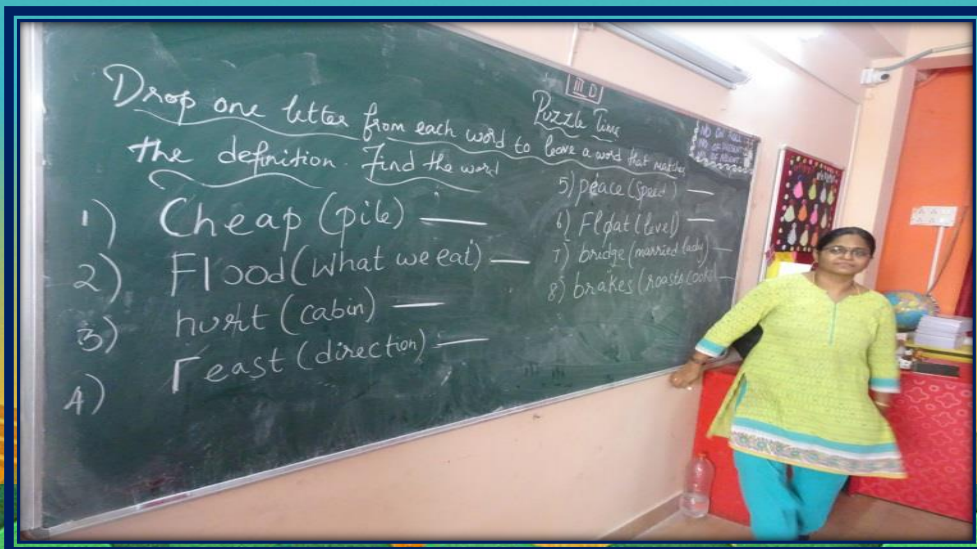 III D
Puzzle Time
Drop one letter from each word to leave a word that matches
the definition. Find the word
1) Cheap (pile) —
2) Flood (what we eat) —
3) hurt (cabin) —
4) Feast (direction) —
5) peace (speed) —
6) Float (level) —
7) bridge (married lady) —
8) brakes (roasts cooks) —
NO ON ROLL
NO OF PRESENT
NO OF ABSENT